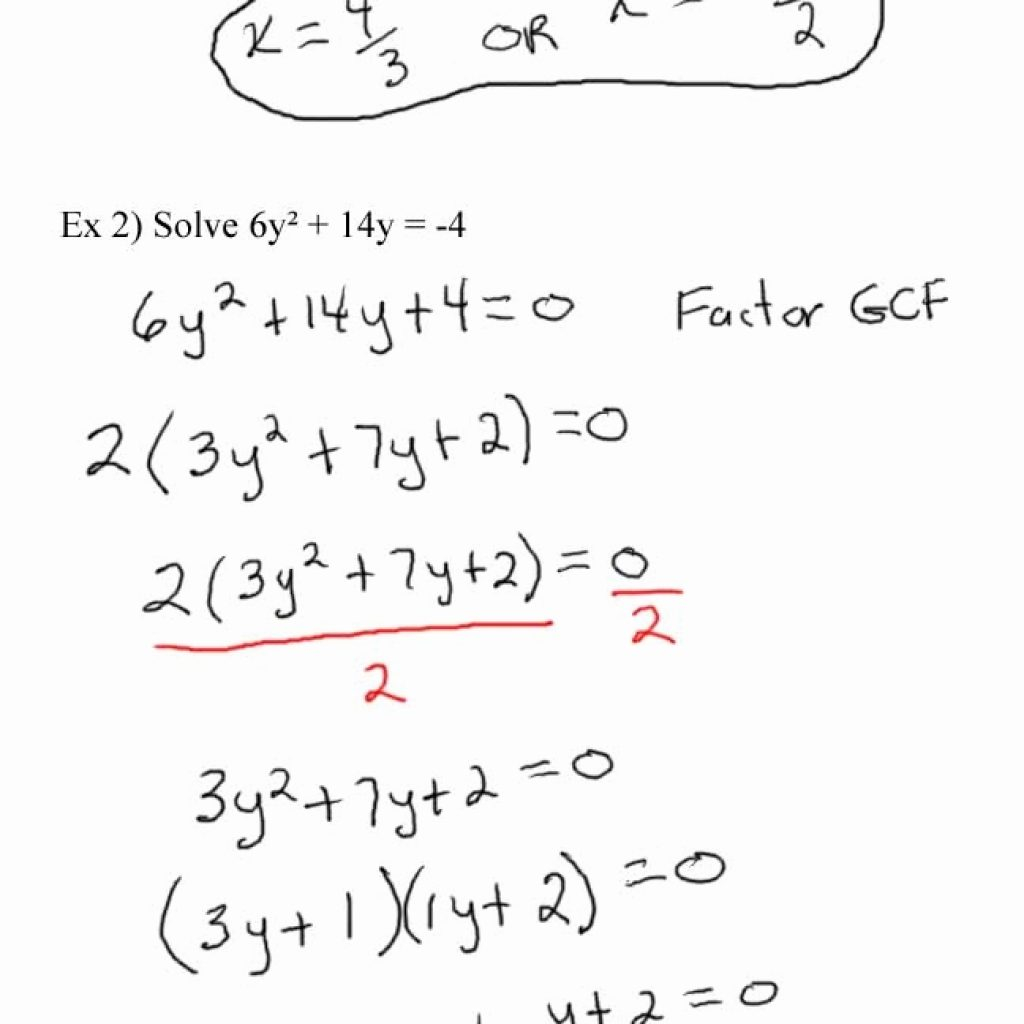 x = 4/3 OR x = /2
Ex 2) Solve 6y² + 14y = -4
6y² + 14y + 4 = 0 Factor GCF
2(3y² + 7y + 2) = 0
2(3y² + 7y + 2) = 0
2 2
3y² + 7y + 2 = 0
(3y + 1)(1y + 2) = 0
y + 2 = 0